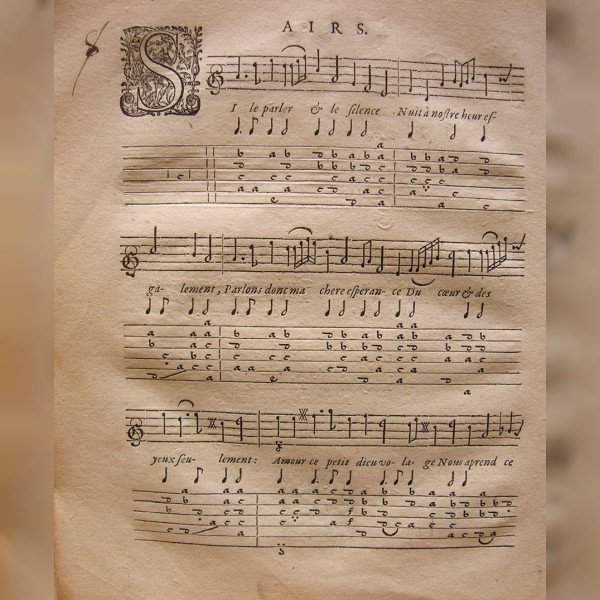 AIRS.
SI le parler & le silence Nuit à nostre heur es-
ga- lement, Parlons donc ma chere esperan- ce Du cœur & des
yeux seu- lement: Amour ce petit dieu vo- la- ge Nous aprend ce